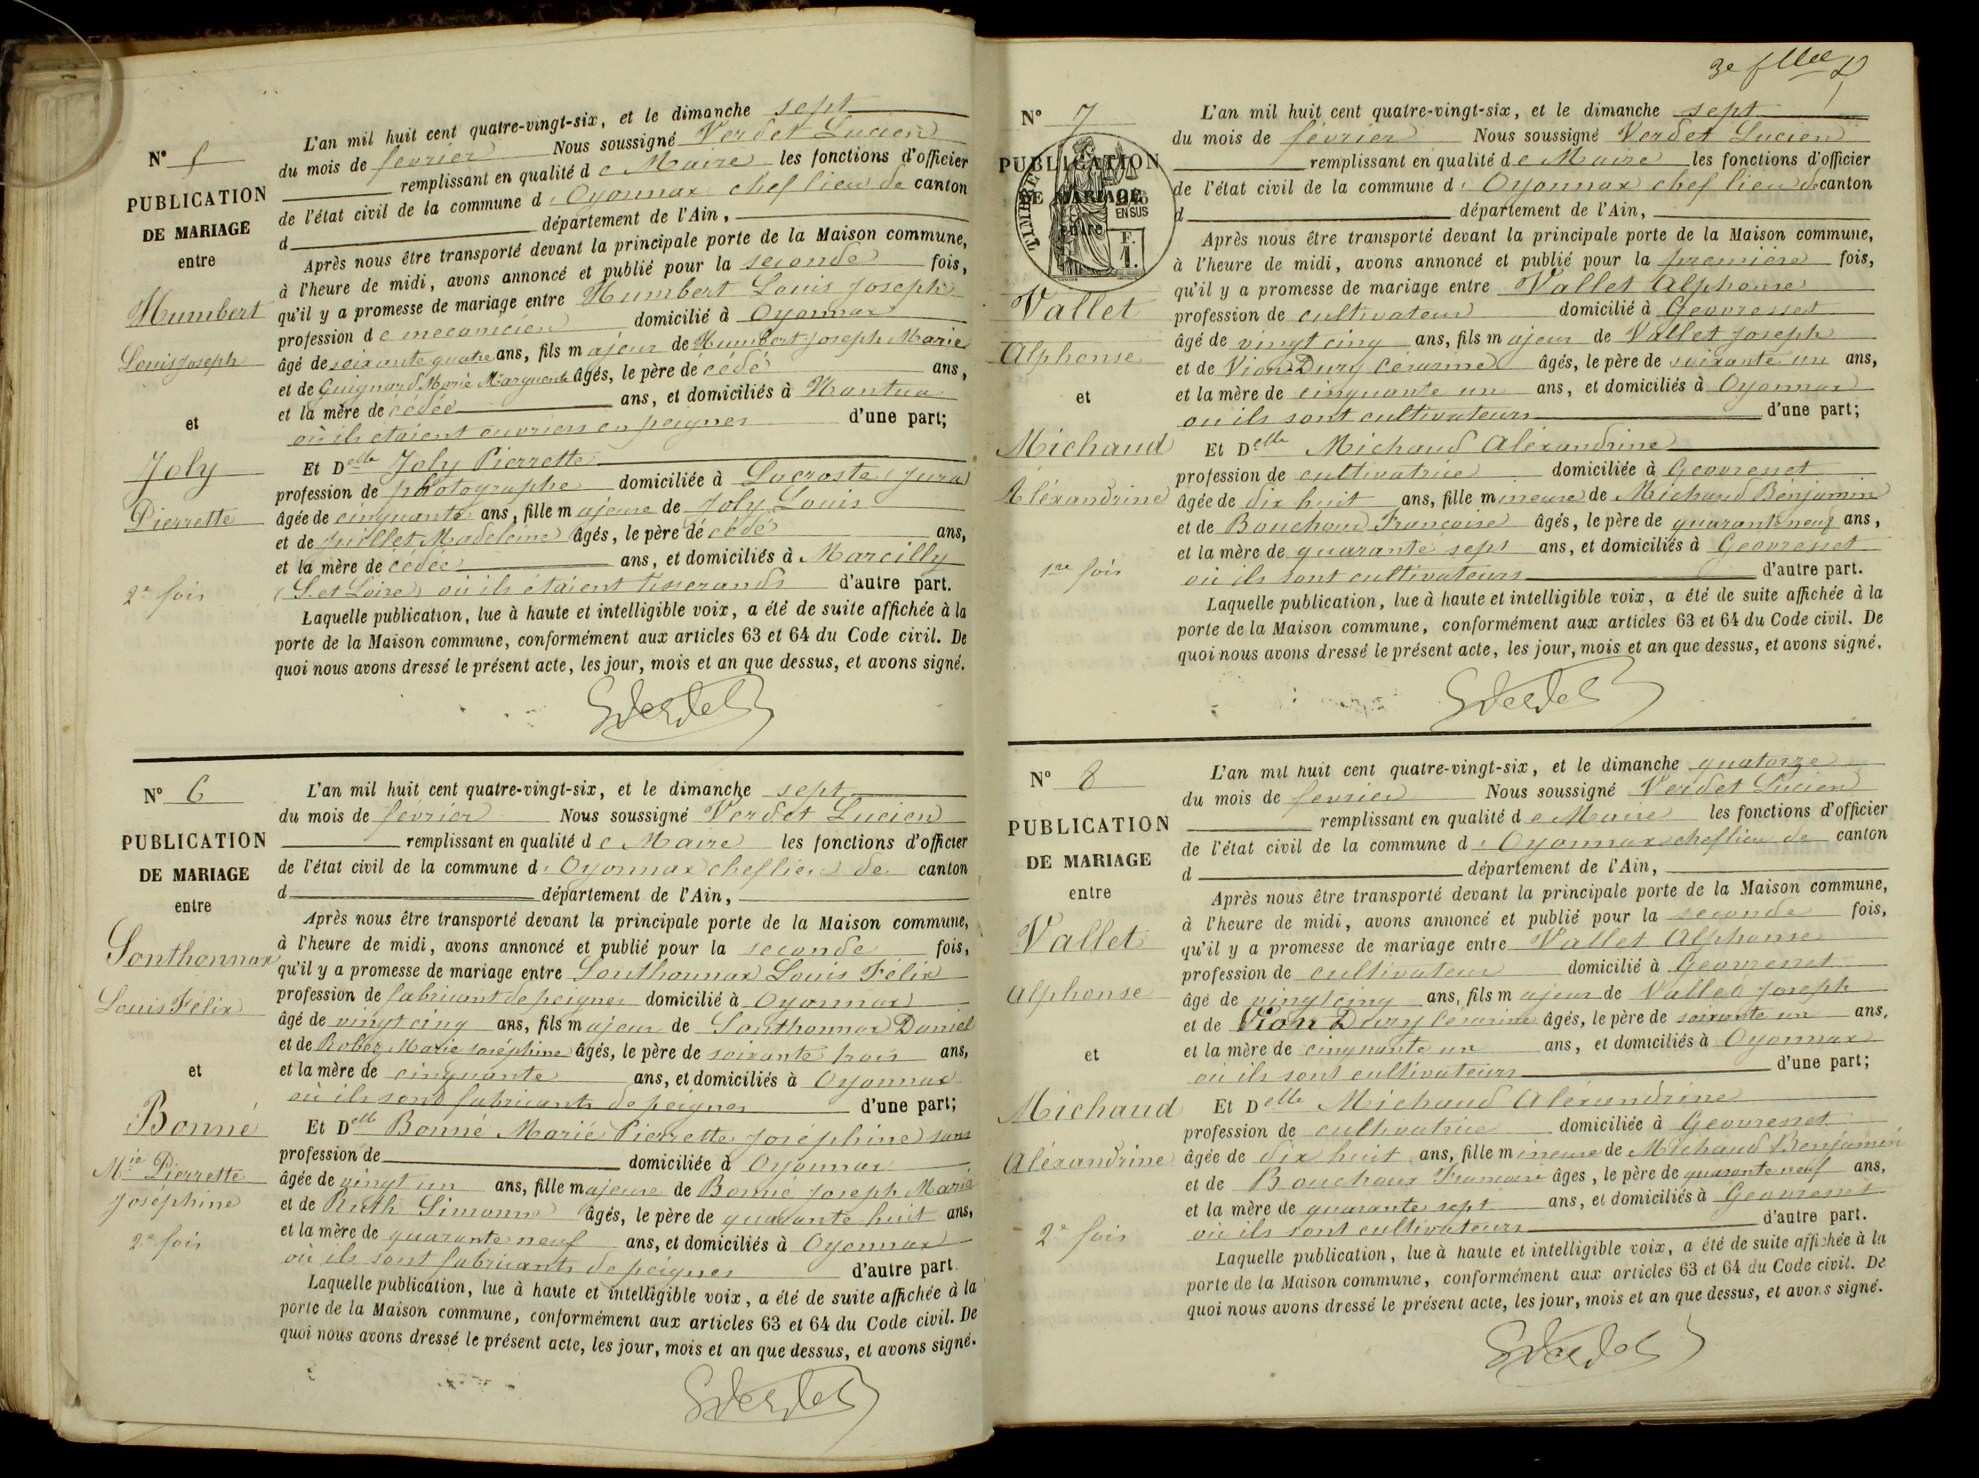 N° 5
PUBLICATION
DE MARIAGE
entre
Humbert
Louis Joseph
et
Joly
Pierrette
2e fois
L'an mil huit cent quatre-vingt-six, et le dimanche sept
du mois de fevrier Nous soussigné Verdet Lucien
remplissant en qualité de Maire les fonctions d'officier
de l'état civil de la commune d'Oyonnax chef lieu de canton
d département de l'Ain,
Après nous être transporté devant la principale porte de la Maison commune,
à l'heure de midi, avons annoncé et publié pour la seconde fois,
qu'il y a promesse de mariage entre Humbert Louis Joseph
profession de mecanicien domicilié à Oyonnax
âgé de soixante quatre ans, fils majeur de Humbert Joseph Marie
et de Guignard Marie Marguerite âgés, le père décédé ans,
et la mère décédée ans, et domiciliés à Nantua
où ils etaient ouvriers en peignes d'une part;
Et Delle Joly Pierrette
profession de photographe domiciliée à Lacroste (Jura)
âgée de cinquante ans, fille majeure de Joly Louis
et de Juillet Madeleine âgés, le père décédé ans,
et la mère décédée ans, et domiciliés à Marcilly
(S. et Loire) où ils étaient tisserands d'autre part.
Laquelle publication, lue à haute et intelligible voix, a été de suite affichée à la
porte de la Maison commune, conformément aux articles 63 et 64 du Code civil. De
quoi nous avons dressé le présent acte, les jour, mois et an que dessus, et avons signé.
N° 6
PUBLICATION
DE MARIAGE
entre
Sonthonnax
Louis Félix
et
Bonné
Mie Pierrette
Josephine
2e fois
L'an mil huit cent quatre-vingt-six, et le dimanche sept
du mois de fevrier Nous soussigné Verdet Lucien
remplissant en qualité de Maire les fonctions d'officier
de l'état civil de la commune d'Oyonnax chef lieu de canton
d département de l'Ain,
Après nous être transporté devant la principale porte de la Maison commune,
à l'heure de midi, avons annoncé et publié pour la seconde fois,
qu'il y a promesse de mariage entre Sonthonnax Louis Félix
profession de fabricant de peignes domicilié à Oyonnax
âgé de vingt cinq ans, fils majeur de Sonthonnax Daniel
et de Robez Marie Joséphine âgés, le père de soixante trois ans,
et la mère de cinquante ans, et domiciliés à Oyonnax
où ils sont fabricants de peignes d'une part;
Et Delle Bonné Marie Pierrette Joséphine sans
profession de domiciliée à Oyonnax
âgée de vingt un ans, fille majeure de Bonné Joseph Marie
et de Ruth Simonne âgés, le père de quarante huit ans,
et la mère de quarante neuf ans, et domiciliés à Oyonnax
où ils sont fabricants de peignes d'autre part.
Laquelle publication, lue à haute et intelligible voix, a été de suite affichée à la
porte de la Maison commune, conformément aux articles 63 et 64 du Code civil. De
quoi nous avons dressé le présent acte, les jour, mois et an que dessus, et avons signé.
N° 7
PUBLICATION
DE MARIAGE
entre
TIMBRE
EN SUS
F.
1.
Vallet
Alphonse
et
Michaud
Aléxandrine
1re fois
L'an mil huit cent quatre-vingt-six, et le dimanche sept
du mois de fevrier Nous soussigné Verdet Lucien
remplissant en qualité de Maire les fonctions d'officier
de l'état civil de la commune d'Oyonnax chef lieu de canton
d département de l'Ain,
Après nous être transporté devant la principale porte de la Maison commune,
à l'heure de midi, avons annoncé et publié pour la premiere fois,
qu'il y a promesse de mariage entre Vallet Alphonse
profession de cultivateur domicilié à Geovresset
âgé de vingt cinq ans, fils majeur de Vallet Joseph
et de Vion Dury Césarine âgés, le père de soixante un ans,
et la mère de cinquante un ans, et domiciliés à Oyonnax
où ils sont cultivateurs d'une part;
Et Delle Michaud Aléxandrine
profession de cultivatrice domiciliée à Geovresset
âgée de dix huit ans, fille mineure de Michaud Benjamin
et de Bouchoux Françoise âgés, le père de quarante neuf ans,
et la mère de quarante sept ans, et domiciliés à Geovresset
où ils sont cultivateurs d'autre part.
Laquelle publication, lue à haute et intelligible voix, a été de suite affichée à la
porte de la Maison commune, conformément aux articles 63 et 64 du Code civil. De
quoi nous avons dressé le présent acte, les jour, mois et an que dessus, et avons signé.
N° 8
PUBLICATION
DE MARIAGE
entre
Vallet
Alphonse
et
Michaud
Aléxandrine
2e fois
L'an mil huit cent quatre-vingt-six, et le dimanche quatorze
du mois de fevrier Nous soussigné Verdet Lucien
remplissant en qualité de Maire les fonctions d'officier
de l'état civil de la commune d'Oyonnax chef lieu de canton
d département de l'Ain,
Après nous être transporté devant la principale porte de la Maison commune,
à l'heure de midi, avons annoncé et publié pour la seconde fois,
qu'il y a promesse de mariage entre Vallet Alphonse
profession de cultivateur domicilié à Geovresset
âgé de vingt cinq ans, fils majeur de Vallet Joseph
et de Vion Dury Césarine âgés, le père de soixante un ans,
et la mère de cinquante un ans, et domiciliés à Oyonnax
où ils sont cultivateurs d'une part;
Et Delle Michaud Aléxandrine
profession de cultivatrice domiciliée à Geovresset
âgée de dix huit ans, fille mineure de Michaud Benjamin
et de Bouchoux Françoise âgés, le père de quarante neuf ans,
et la mère de quarante sept ans, et domiciliés à Geovresset
où ils sont cultivateurs d'autre part.
Laquelle publication, lue à haute et intelligible voix, a été de suite affichée à la
porte de la Maison commune, conformément aux articles 63 et 64 du Code civil. De
quoi nous avons dressé le présent acte, les jour, mois et an que dessus, et avons signé.